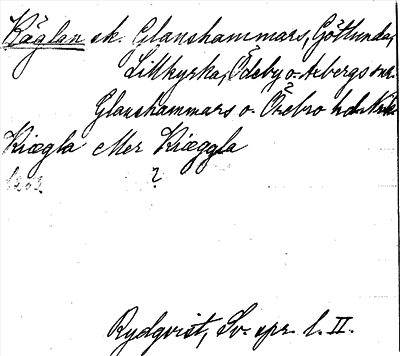 Käglan sk. Glanshammars, Götlunda,
Lillkyrka, Ödeby o. Axbergs snr.
Glanshammars o. Örebro hdr. Närke
Kiægla eller Kiæggla
?
Rydqvist, Sv. spr. l. II.